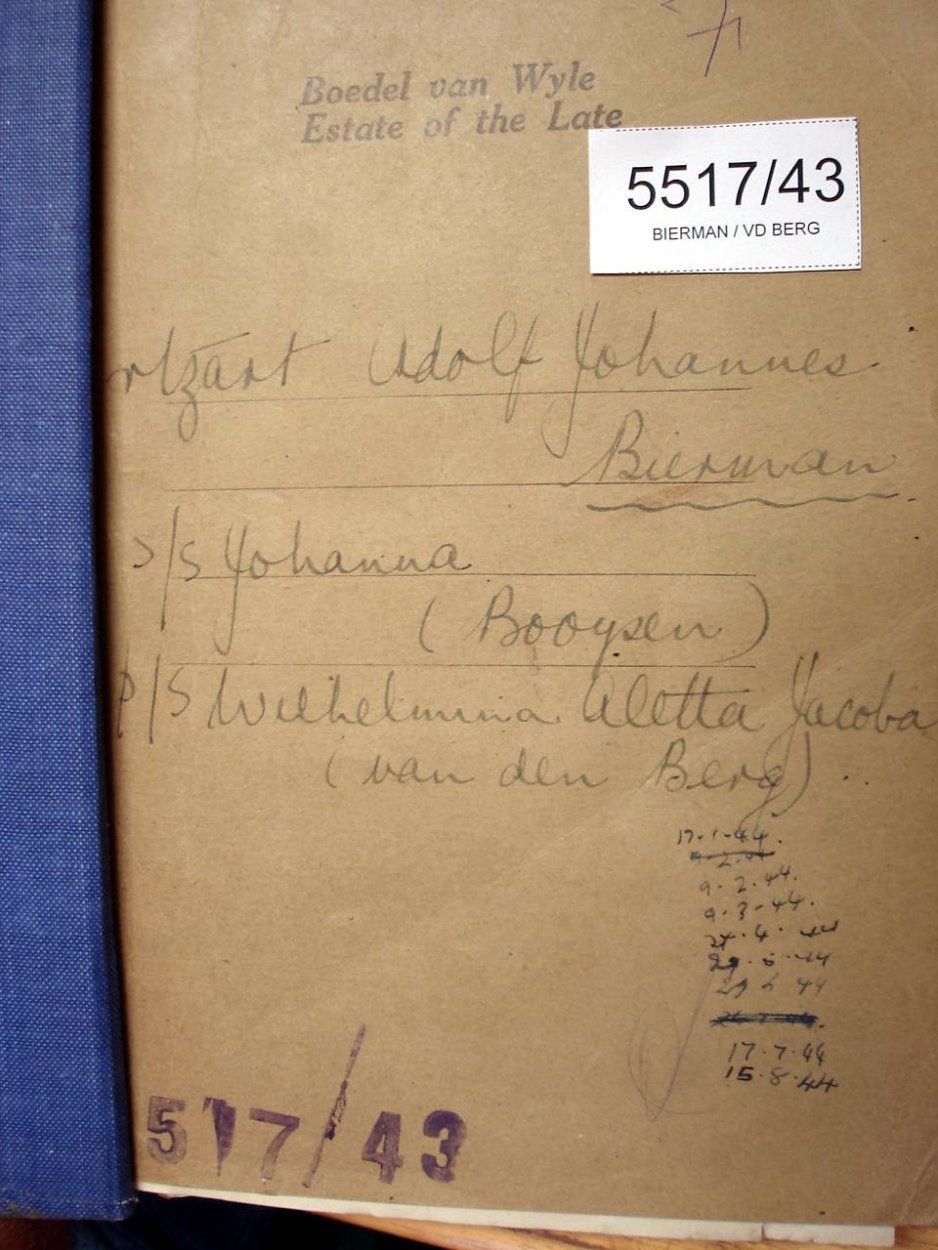 Boedel van Wyle
Estate of the Late
5517/43
BIERMAN / VD BERG
rtzart Adolf Johannes
Bierman
s/s Johanna
(Booysen)
p/s Wilhelmina Aletta Jacoba
(van den Berg)
17.1.44.
9.2.44.
9.3.44.
29 6 44
17.7.44
15.8.44
517/43